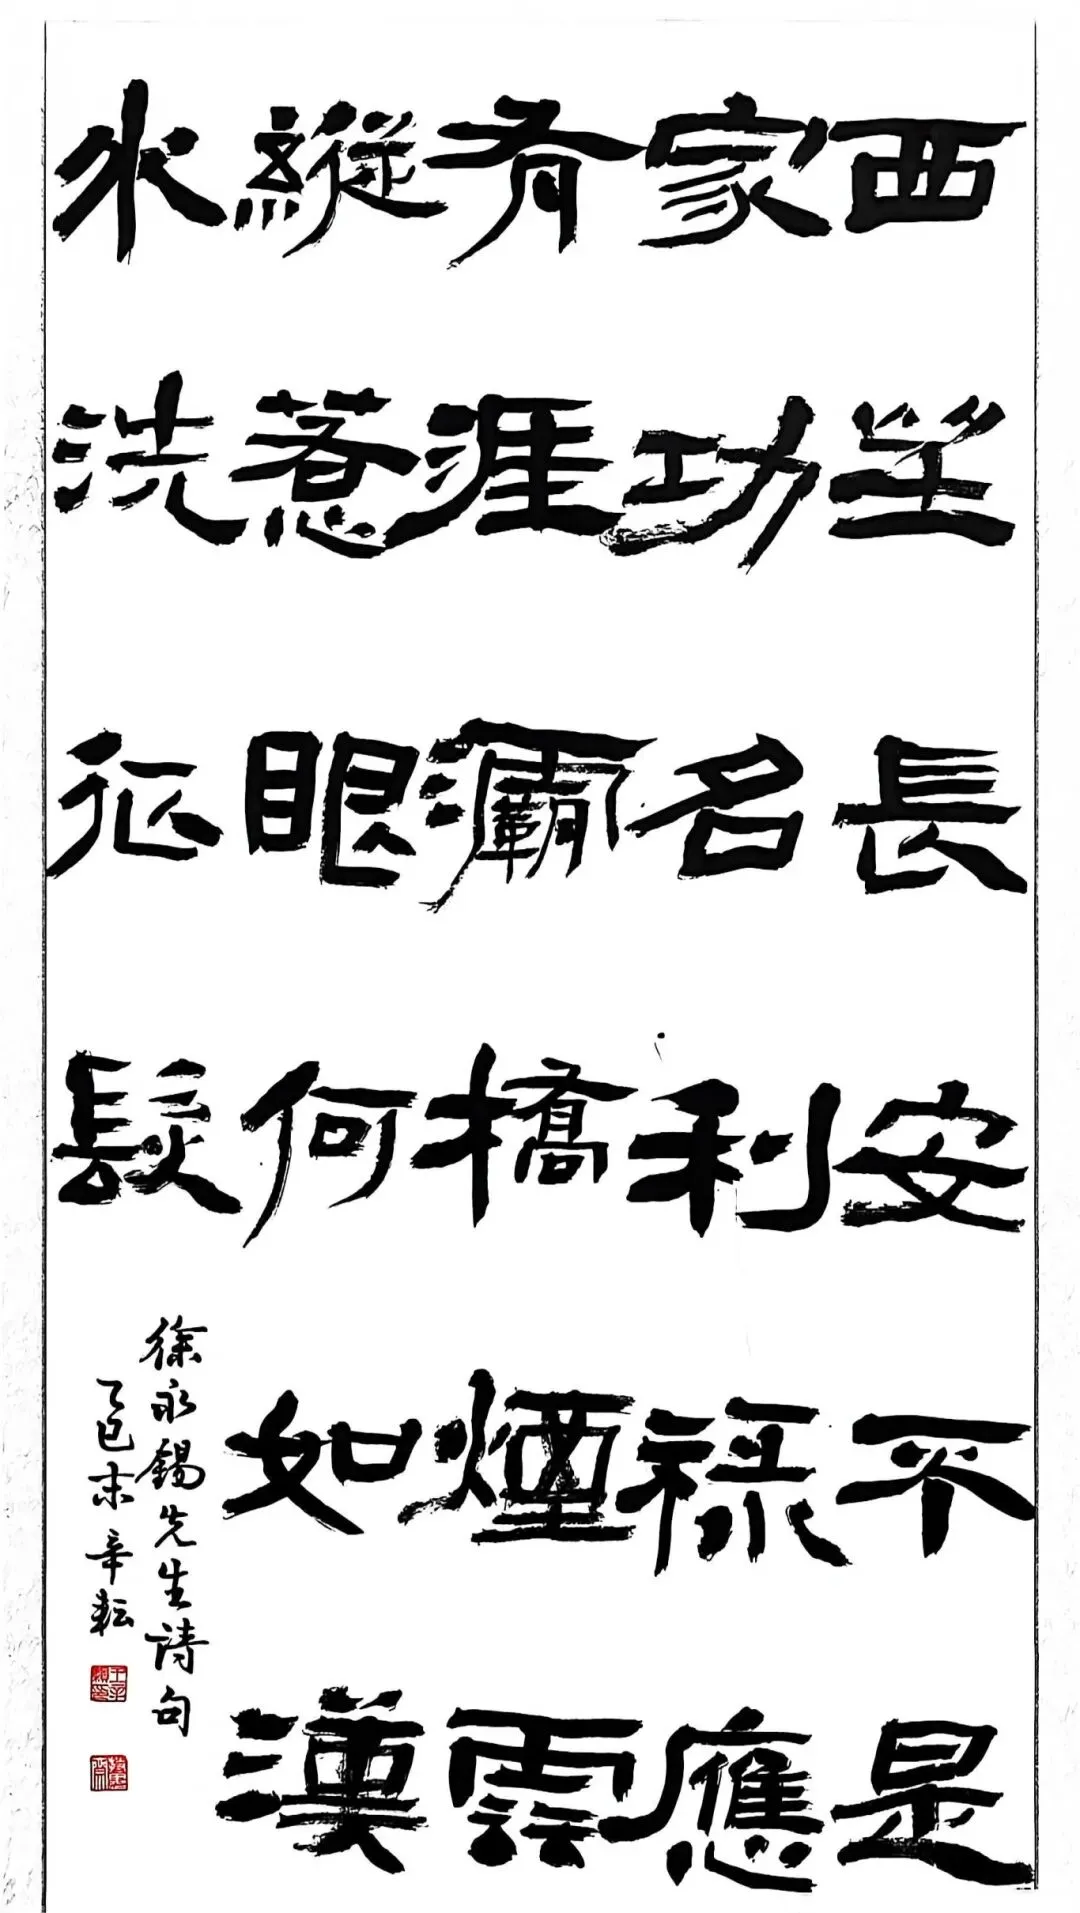 西坐長安不是
家功名利祿應
有涯灞橋煙雲
縱惹眼何如漢
水洗征髮
徐永錫先生詩句
乙巳末辛耘